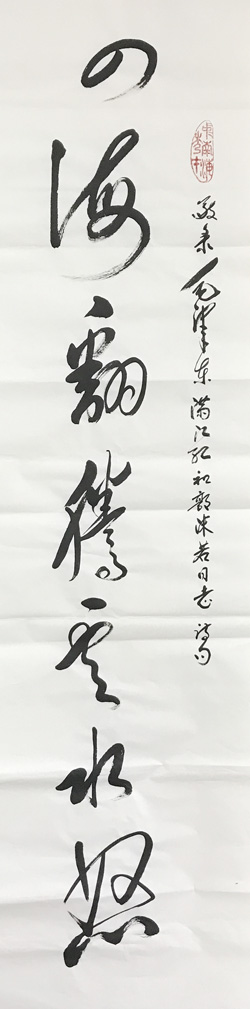 敬录毛泽东满江红和郭沫若同志诗句
四海翻腾云水怒